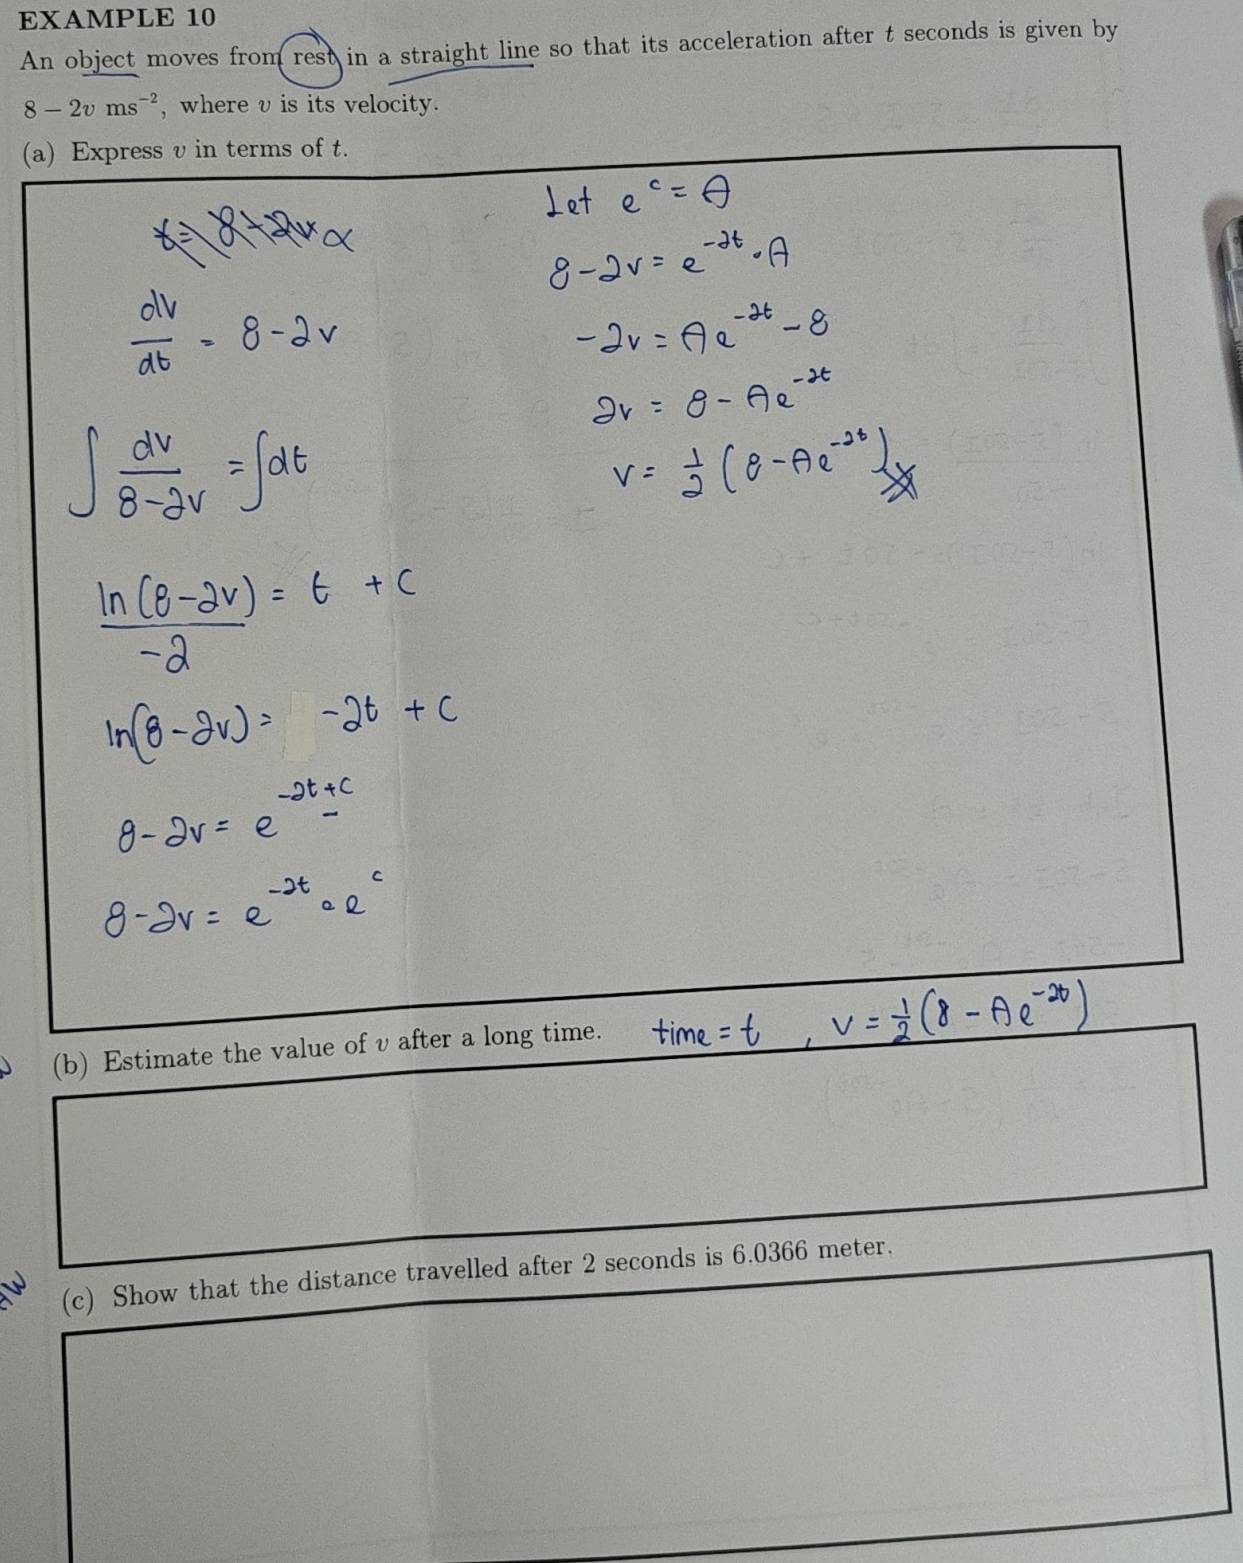 EXAMPLE 10
An object moves from rest in a straight line so that its acceleration after t seconds is given by
8 − 2v ms⁻², where v is its velocity.
(a) Express v in terms of t.
dv/dt = 8-2v
∫ dv/(8-2v) = ∫dt
ln(8-2v)/-2 = t + C
ln(8-2v) = -2t + C
8-2v = e^(-2t+C)
8-2v = e^(-2t) · e^c
Let e^c = A
8-2v = e^(-2t) · A
-2v = Ae^(-2t) - 8
2v = 8 - Ae^(-2t)
v = 1/2 (8-Ae^(-2t))
(b) Estimate the value of v after a long time. time = t , v = 1/2 (8 - Ae^(-2t))
(c) Show that the distance travelled after 2 seconds is 6.0366 meter.